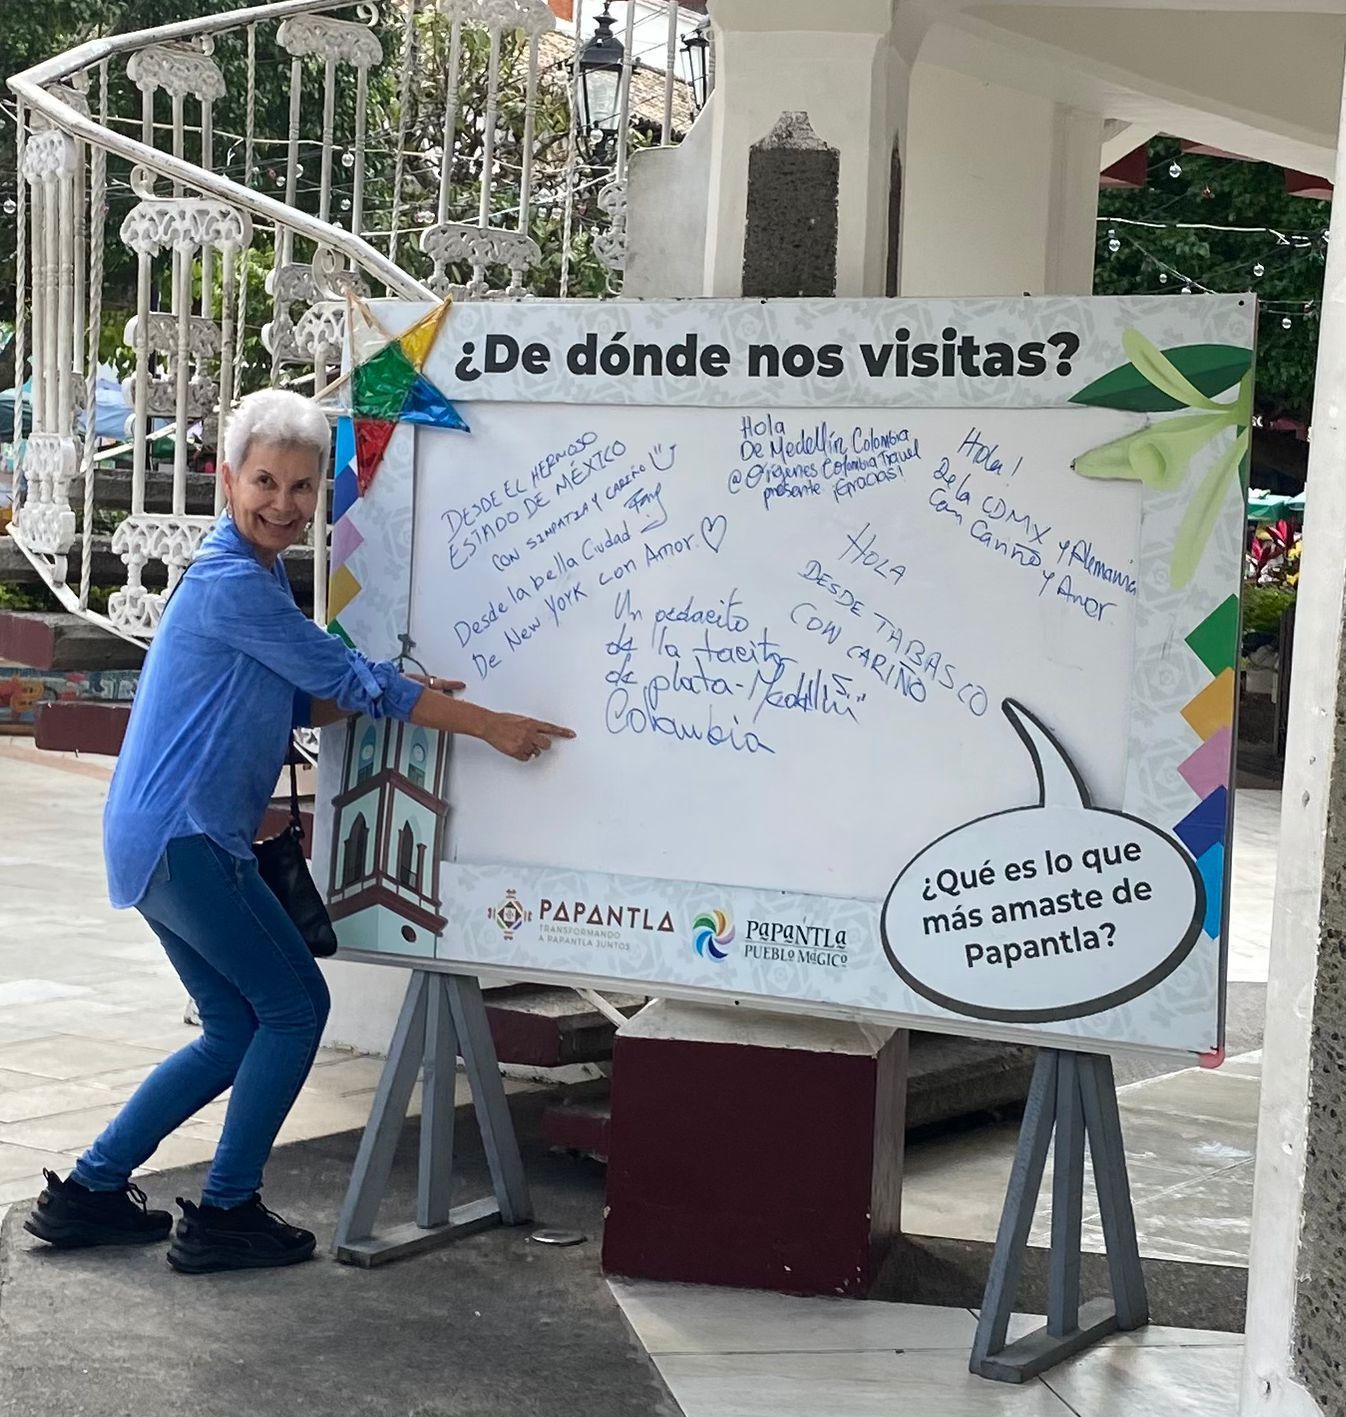 ¿De dónde nos visitas?
DESDE EL HERMOSO
ESTADO DE MÉXICO
CON SIMPATIA Y CARIÑO
Desde la bella Ciudad
De New York con Amor.
Hola
De Medellín, Colombia
@Origenes Colombia Travel
presente ¡Gracias!
Hola!
De la CDMX y Alemania
Con Cariño y Amor
HOLA
DESDE TABASCO
CON CARIÑO
Un pedacito
de la tacita
de plata-
Colombia
¿Qué es lo que
más amaste de
Papantla?
PAPANTLA
TRANSFORMANDO
A PAPANTLA JUNTOS
PAPANTLA
PUEBLO MÁGICO